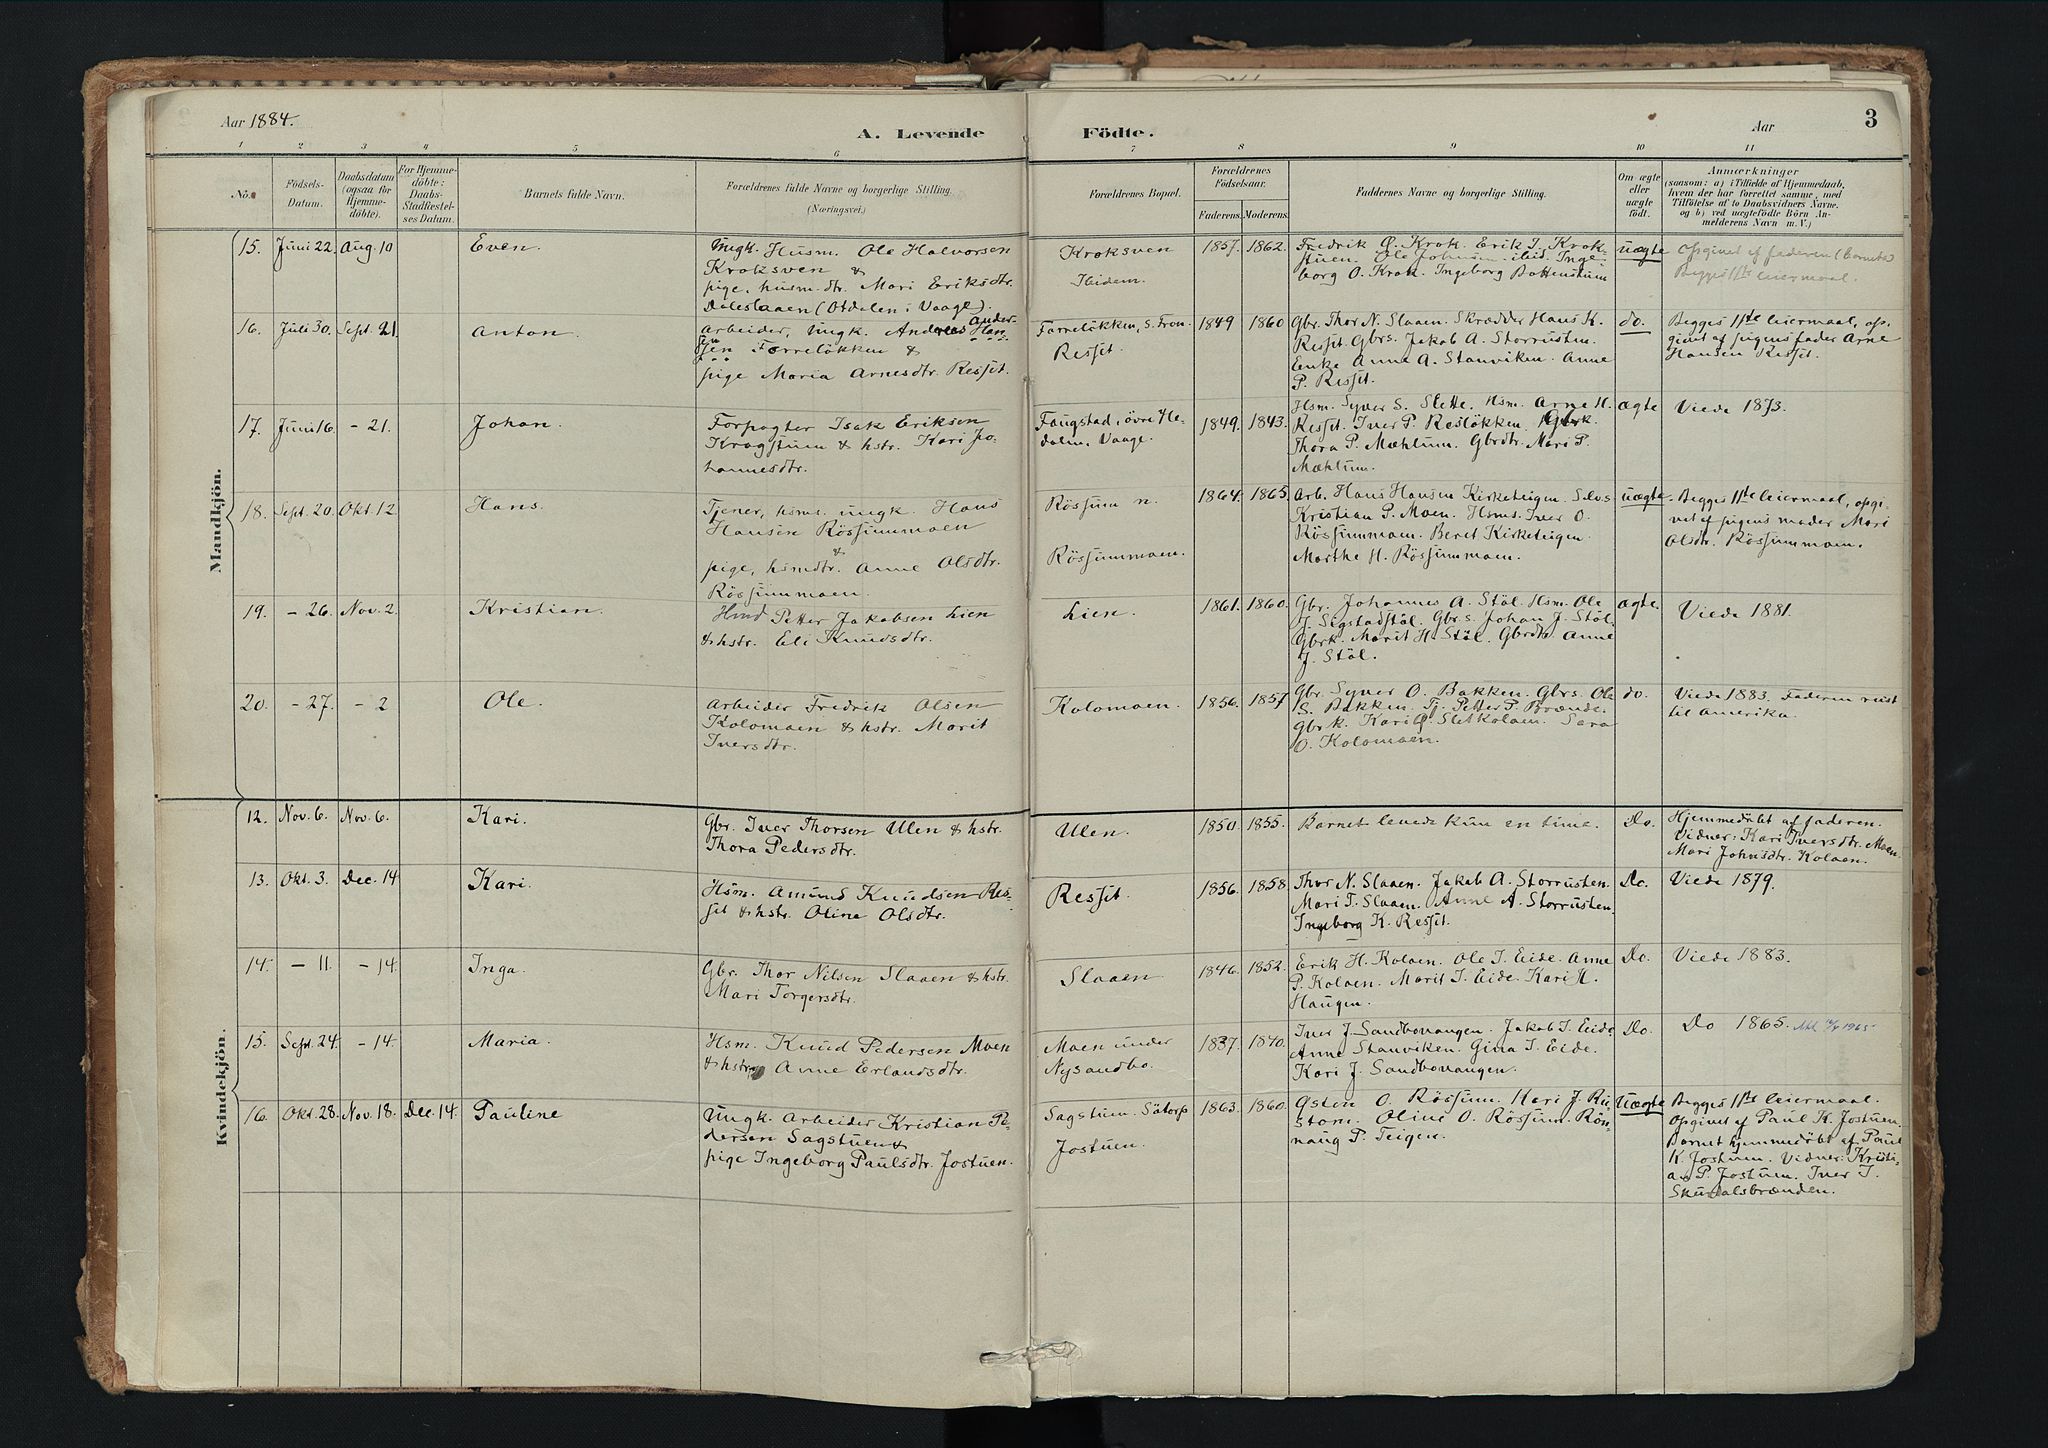 Aar 1884.
A. Levende Födte.
Aar
3
1 2 3 4 5 6 7 8 9 10 11
No.
Födsels-
Datum.
Daabsdatum
(ogsaa for
Hjemme-
döbte).
For Hjemme-
döbte:
Daabs-
Stadfæstel-
ses Datum.
Barnets fulde Navn.
Forældrenes fulde Navne og borgerlige Stilling.
(Næringsvei.)
Forældrenes Bopæl.
Forældrenes
Födselsaar.
Faderens. Moderens.
Faddernes Navne og borgerlige Stilling.
Om ægte
eller
uægte
födt.
Anmærkninger
(saasom: a) i Tilfælde af Hjemmedaab,
hvem der har forrettet samme, med
Tilföielse af to Daabsvidners Navne,
og b) ved uægtefödte Börn An-
melderens Navn m. V.)
Mandkjön.
15. Juni 22. Aug. 10
Even.
Ungk. Husm. Ole Halvorsen
Kroksven &
pige, husm.dtr. Mari Eriksdtr.
(Otdalen i Vaage).
Kroksven
Ibidem.
1857. 1862.
Fredrik O. Krok. Erik I. Krok-
stuen. Ole Johnsen ibid. Inge-
borg O. Krok. Ingeborg Bottenstuen
uægte
Opgivet af faderen (Barnets)
Begges 1ste leiermaal.
16. Juli 30. Sept. 21.
Anton.
Arbeider, Ungk. Andreas Han- Ander-
sen sen Farreløkken &
pige Maria Arnesdtr. Ressit.
Farreløkken, S. Fron
Ressit.
1849 1860
Gbr. Thor N. Slaaen. Skrædder Hans K.
Ressit. Gbrs. Jakob A. Storrusten.
Enke Anna A. Stanviken. Anne
P. Ressit.
do.
Begges 1ste leiermaal, op-
givet af pigens fader Arne
Hansen Ressit.
17. Juni 16. - 21.
Johan.
Forpagter Isak Eriksen
Kragstuen & hstr. Kari Jo-
hannesdtr.
Faugstad i övre He-
dalen, Vaage.
1849. 1843.
Hsm. Syver S. Slette. Hsm. Arne H.
Ressit. Iver P. Resløkken. Gbrk.
Thora P. Mæhlum. Gbrdtr. Mari P.
Mæhlum.
ægte
Viede 1873.
18. Sept. 20. Okt. 12
Hans.
Tjener, hsms. ungk. Hans
Hansen Rössummoen
&
pige, hsmdtr. Anne Olsdtr.
Rössummoen.
Rössum n.
Rössummoen.
1864. 1865.
Arb. Hans Hansen Kirketeigen. Selvs
Kristian P. Moen. Hsms. Iver O.
Rössummoen. Beret Kirketeigen.
Marthe H. Rössummoen.
uægte
Begges 1ste leiermaal, opgi-
vet af pigens moder Mari
Olsdtr. Rössummoen.
19. - 26. Nov. 2.
Kristian.
Petter Jakobsen Lien
& hstr. Eli Knudsdtr.
Lien.
1861. 1860.
Gbr. Johannes A. Stöl. Hsm. Ole
J. Sigstadstöl. Gbrs. Johan J. Stöl.
Gbrk. Marit H. Stöl. Gbrdtr Anne
J. Stöl.
ægte.
Viede 1881.
20. - 27. - 2
Ole.
Arbeider Fredrik Olsen
Kolomoen & hstr. Marit
Iversdtr.
Kolomoen.
1856. 1857
Gbr. Syver O. Bakken. Gbrs. Ole
S. Bakken. Tj. Petter P. Brænde.
Gbrk. Kari O. Sletkolaen. Sara
O. Kolomoen.
do.
Viede 1883. Faderen reist
til Amerika.
Kvindekjön.
12. Nov. 6. Nov. 6.
Kari.
Gbr. Iver Thorsen Ulen & hstr.
Thora Pedersdtr.
Ulen.
1850. 1855.
Barnet levede kun en time.
Do.
Hjemmedøbt af faderen.
Vidner: Kari Iversdtr. Moen.
Mari Johnsdtr. Kolaen.
13. Okt. 3. Dec. 14
Kari.
Hsm. Amund Knudsen Res-
sit & hstr. Oline Olsdtr.
Ressit.
1856. 1858.
Thor N. Slaaen. Jakob A. Storrusten.
Mari T. Slaaen. Anne A. Storrusten.
Ingeborg K. Ressit.
Do.
Viede 1879.
14. - 11. - 14.
Inga.
Gbr. Thor Nilsen Slaaen & hstr.
Mari Torgersdtr.
Slaaen
1846. 1852.
Erik H. Kolaen. Ole I. Eide. Anne
P. Kolaen. Marit I. Eide. Kari H.
Haugen.
Do.
Viede 1883.
15. Sept. 24. - 14.
Maria.
Hsm. Knud Pedersen Moen
& hstr. Anne Erlandsdtr.
Moen under
Nysandbo.
1837. 1840.
Iver J. Sandbovangen. Jakob I. Eide.
Anne Stanviken. Gina I. Eide.
Kari J. Sandbovangen.
Do.
Do 1865. 1965
16. Okt. 28. Nov. 18. Dec. 14.
Pauline
Ungk. Arbeider Kristian Pe-
dersen Sagstuen &
pige Ingeborg Paulsdtr. Jostuen.
Sagstuen. Sötorp
Jostuen.
1863. 1860.
Østen O. Rössum. Kari J. Ru-
stom. Oline O. Rössum. Rön-
naug P. Teigen.
Uægte
Begges 1ste leiermaal.
Opgivet af Paul K. Jostuen.
Barnet hjemmedøbt af Paul
K. Jostuen. Vidner: Kristi-
an P. Jostuen. Iver I.
Skurdalsbrænden.